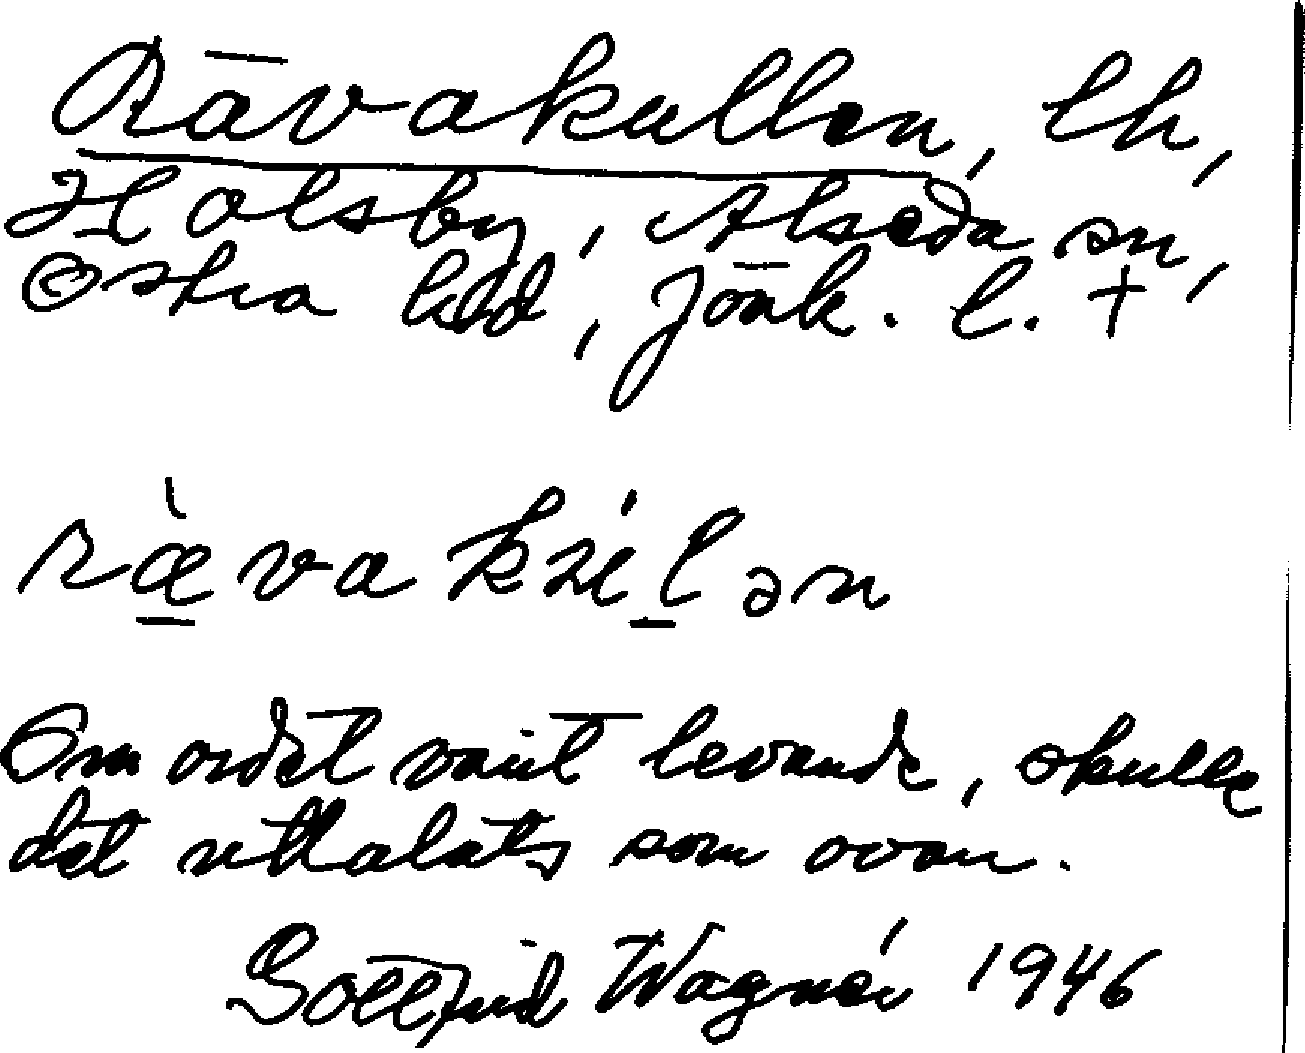 Rävakullen, lh,
Holsby, Alseda sn,
Östra hd, Jönk. l. †
Om ordet varit levande, skulle
det uttalats som ovan.
Gottfrid Wagnér 1946